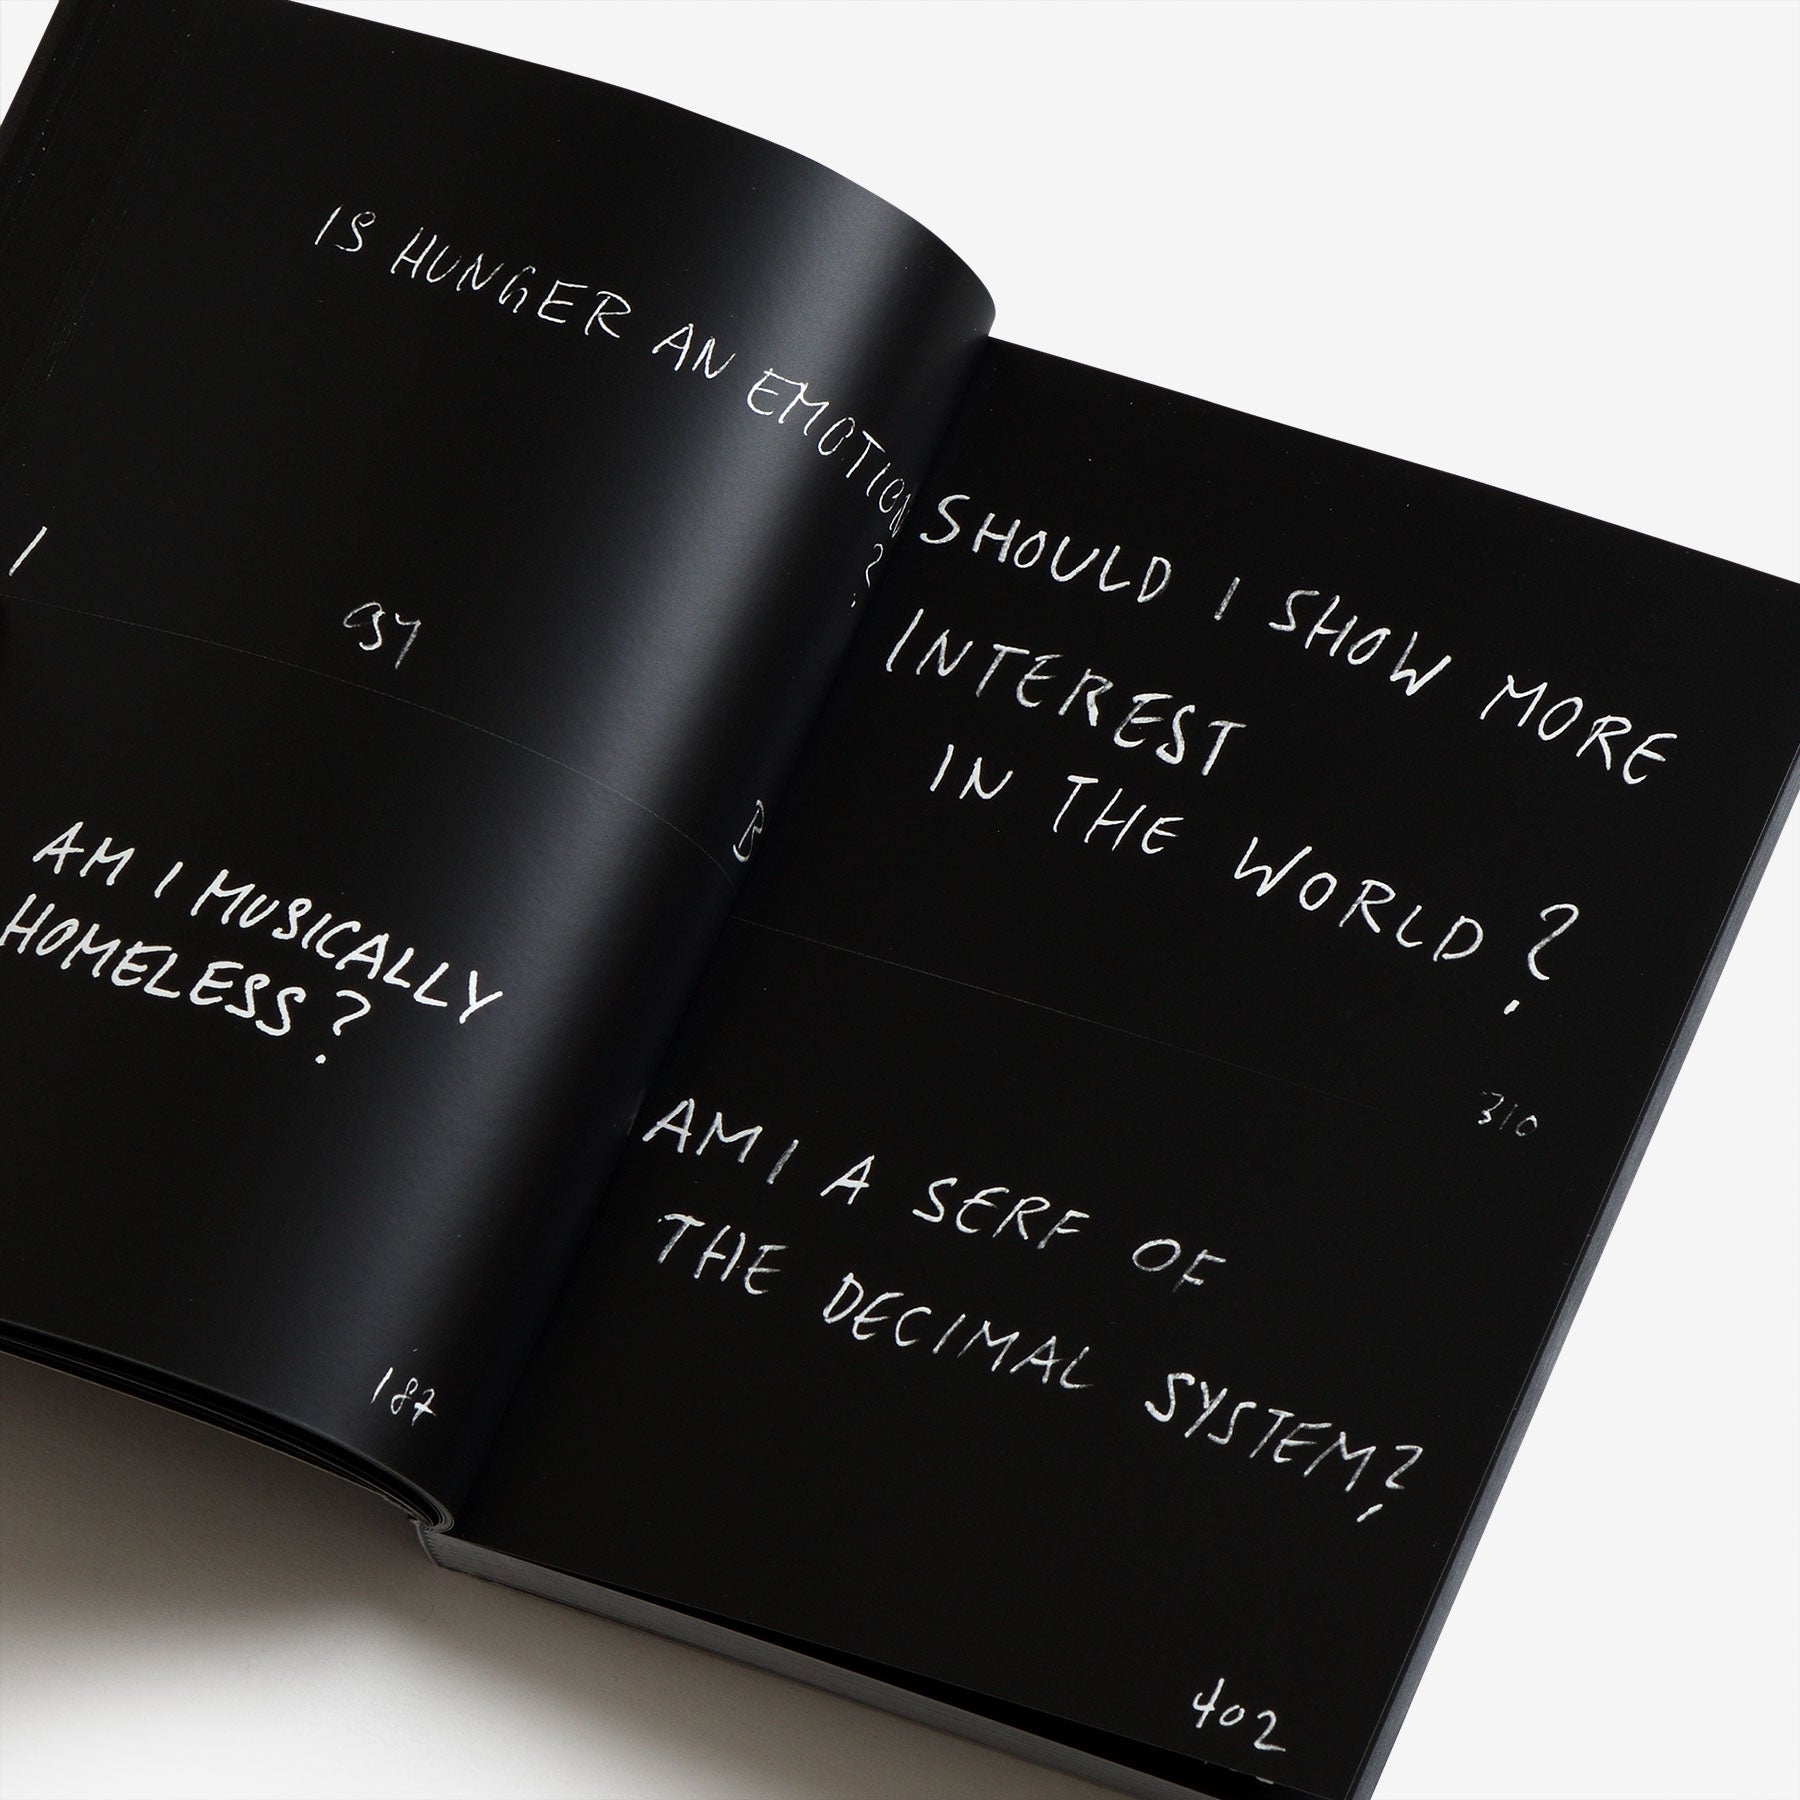 IS HUNGER AN EMOTION
?
I
B
AM I MUSICALLY
HOMELESS?
187
SHOULD I SHOW MORE
INTEREST
IN THE WORLD?
310
AM I A SERF OF
THE DECIMAL SYSTEM?
402